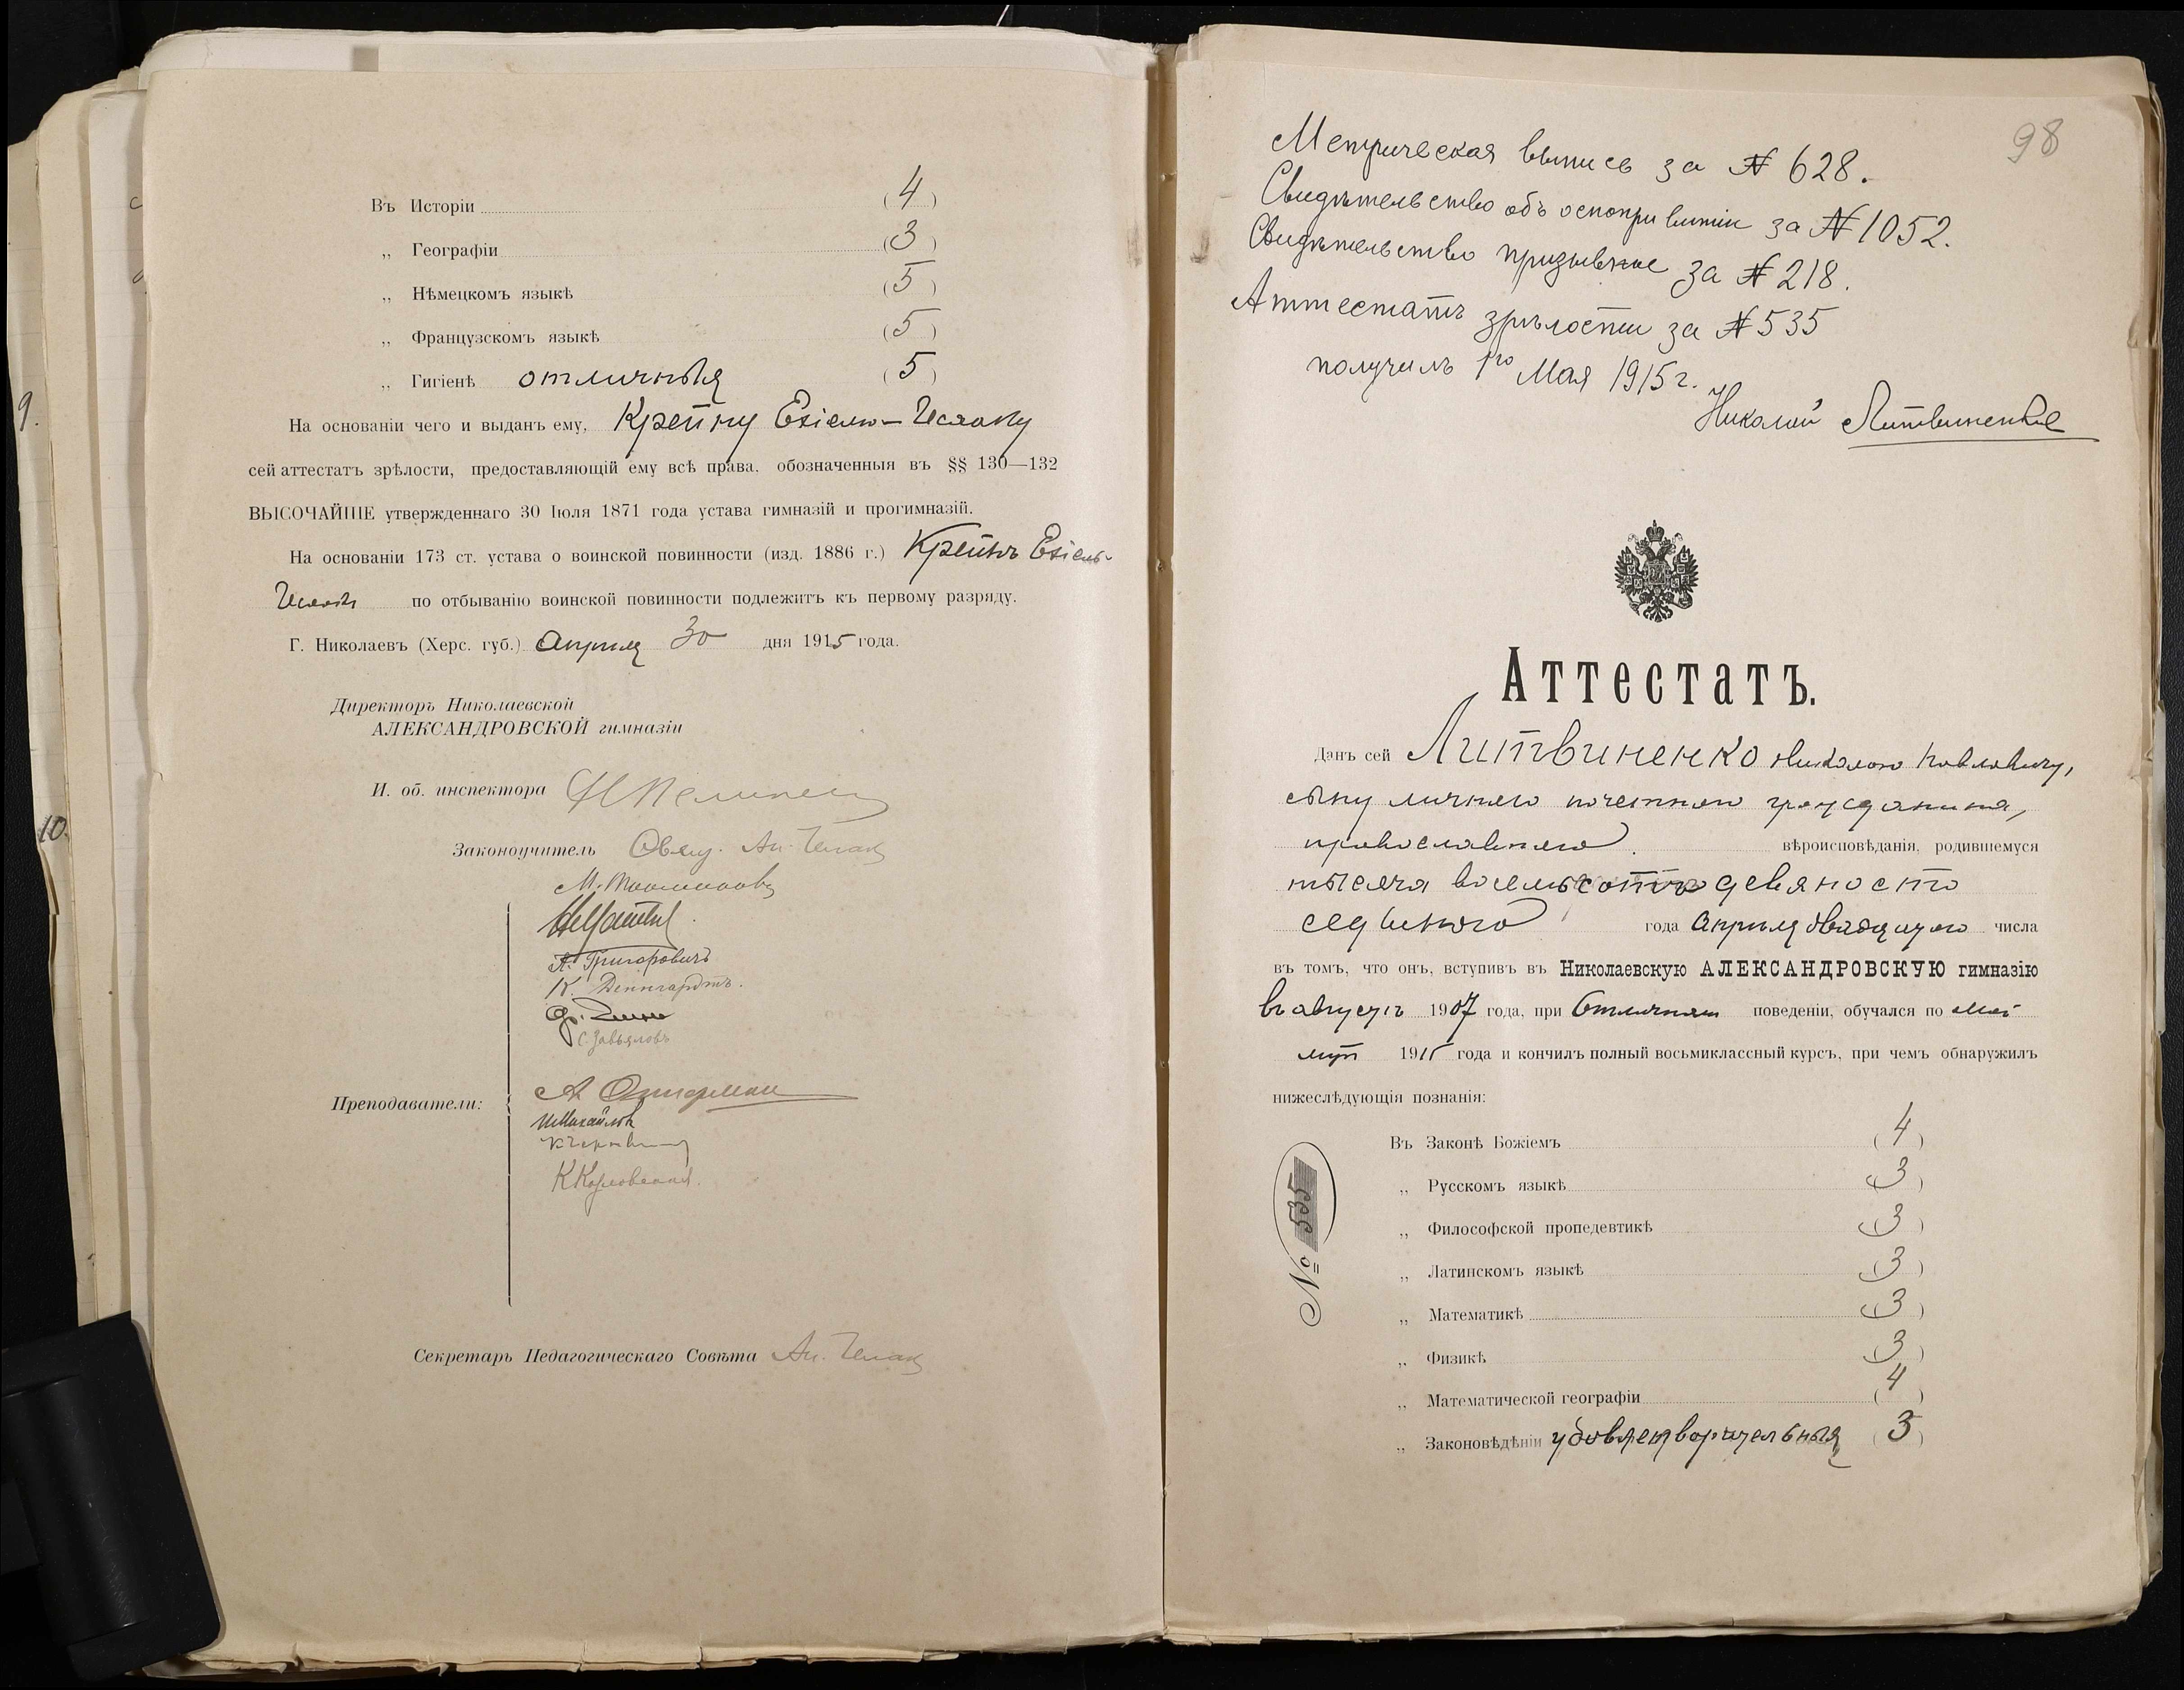 Въ Исторіи (4)
„ Географіи (3)
„ Нѣмецкомъ языкѣ (5)
„ Французскомъ языкѣ (5)
„ Гигіенѣ отличныя (5)
На основаніи чего и выданъ ему, Крейну Ехіелю-Исааку
сей аттестатъ зрѣлости, предоставляющій ему всѣ права, обозначенныя въ §§ 130—132
ВЫСОЧАЙШЕ утвержденнаго 30 Іюля 1871 года устава гимназій и прогимназій.
На основаніи 173 ст. устава о воинской повинности (изд. 1886 г.) Крейнъ Ехіель-
Исаакъ по отбыванію воинской повинности подлежитъ къ первому разряду.
Г. Николаевъ (Херс. губ.) Апрѣля 30 дня 1915 года.
Директоръ Николаевской
АЛЕКСАНДРОВСКОЙ гимназіи
И. об. инспектора
Законоучитель Ап.
М.
А. Григоровичъ
К. Деннгардтъ.
С. Завьяловъ
Преподаватели: А
И Михайловъ
К
Секретарь Педагогическаго Совѣта Ап.
9.
10.
98
Метрическая выпись за № 628.
Свидѣтельство объ оспопривитіи за № 1052.
Свидѣтельство призывное за № 218.
Аттестатъ зрѣлости за № 535
получилъ 1го Мая 1915 г.
Николай Литвиненко
Аттестатъ.
Данъ сей Литвиненко Николаю Павловичу,
сыну личнаго почетнаго гражданина,
православнаго вѣроисповѣданія, родившемуся
тысяча восемьсотъ девяносто
седьмого года Апрѣля двадцатаго числа
въ томъ, что онъ, вступивъ въ Николаевскую АЛЕКСАНДРОВСКУЮ гимназію
въ августѣ 1907 года, при отличномъ поведеніи, обучался по
1915 года и кончилъ полный восьмиклассный курсъ, при чемъ обнаружилъ
нижеслѣдующія познанія:
Въ Законѣ Божіемъ (4)
„ Русскомъ языкѣ (3)
„ Философской пропедевтикѣ (3)
„ Латинскомъ языкѣ (3)
„ Математикѣ (3)
„ Физикѣ (3)
„ Математической географіи (4)
„ Законовѣдѣніи удовлетворительныя (3)
№ 535